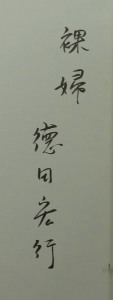 裸婦
德田宏行